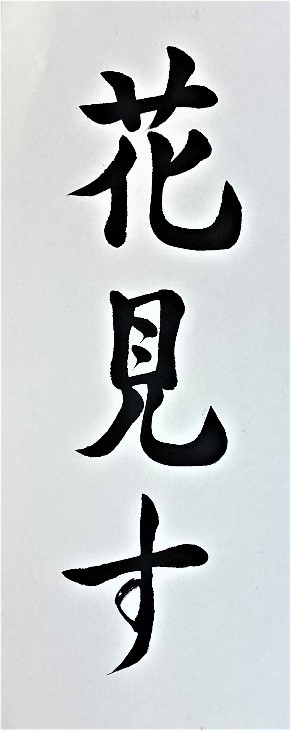 花見す